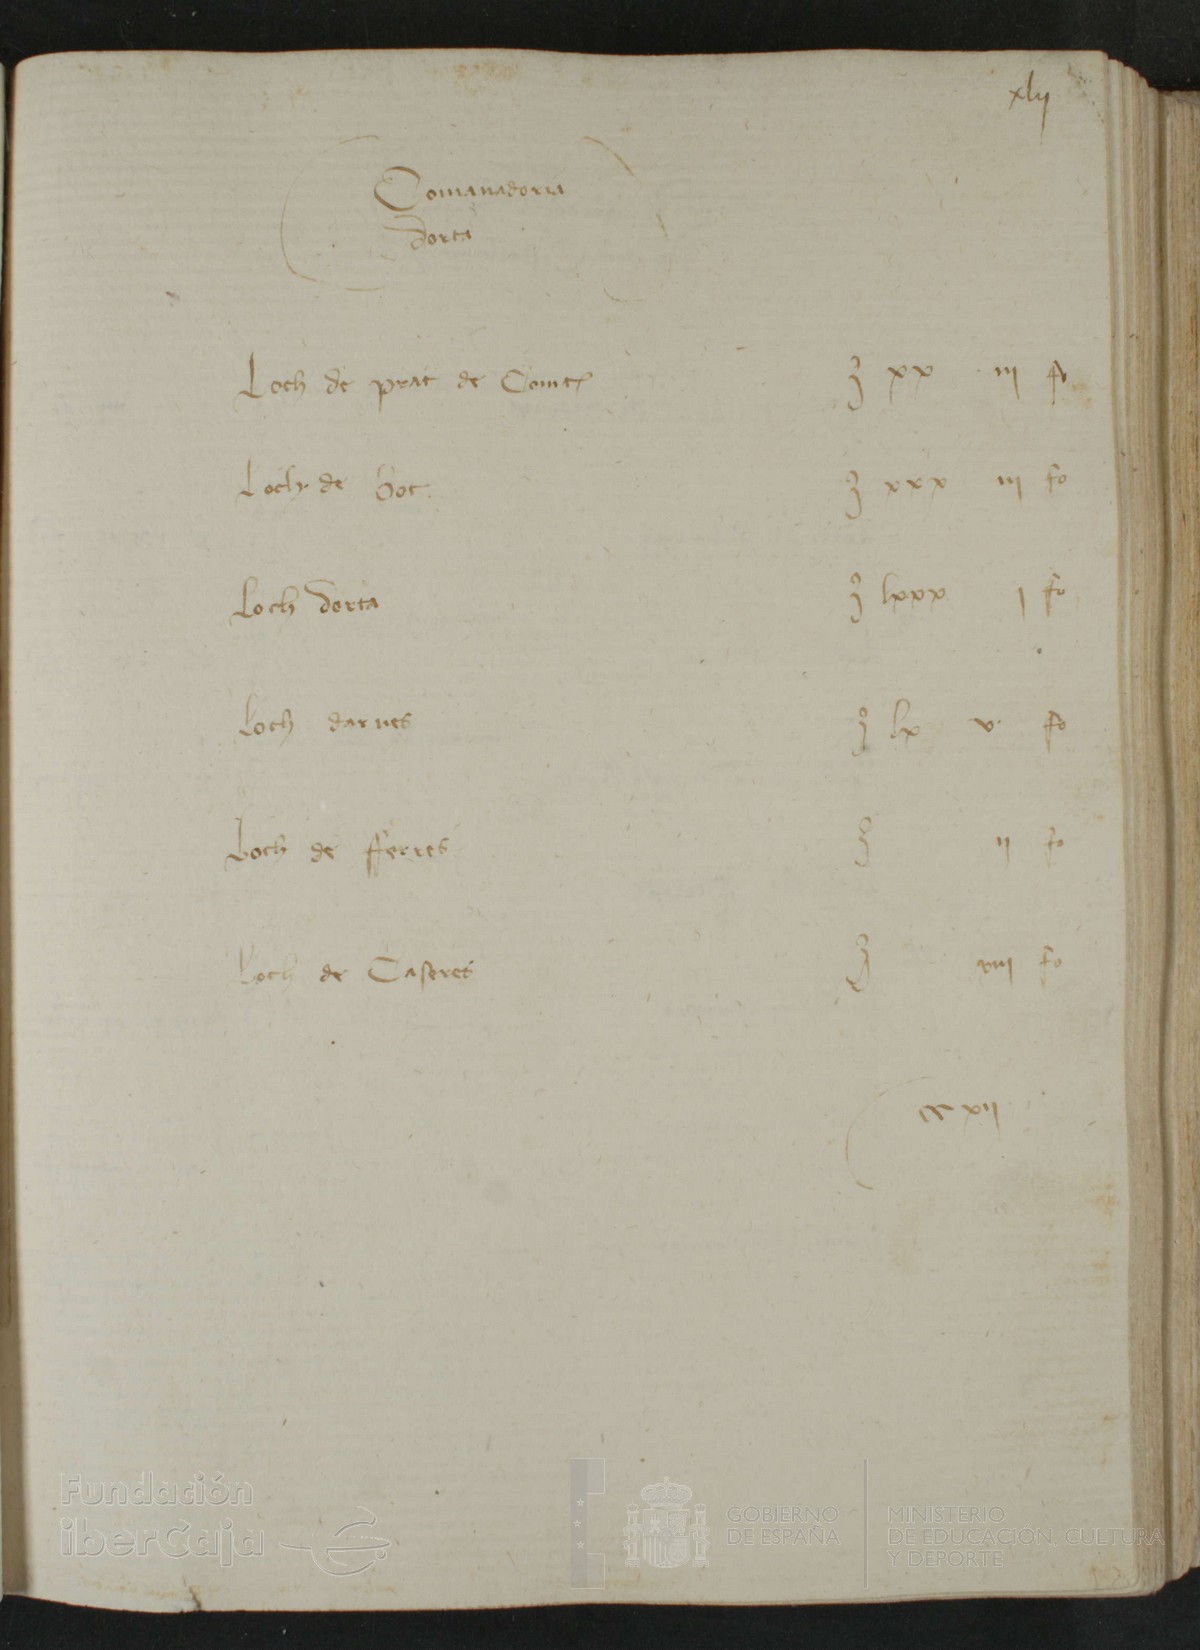 xlij
Comanadoria
dorta
Loch de prat de Comte xx iii fo
Loch de bot xxx iii fo
Loch dorta lxxx i fo
Loch darnes lx v fo
Loch de fferres ii fo
Loch de Caseres viii fo
CCxii
Fundación
iberCaja
GOBIERNO
DE ESPAÑA
MINISTERIO
DE EDUCACIÓN, CULTURA
Y DEPORTE